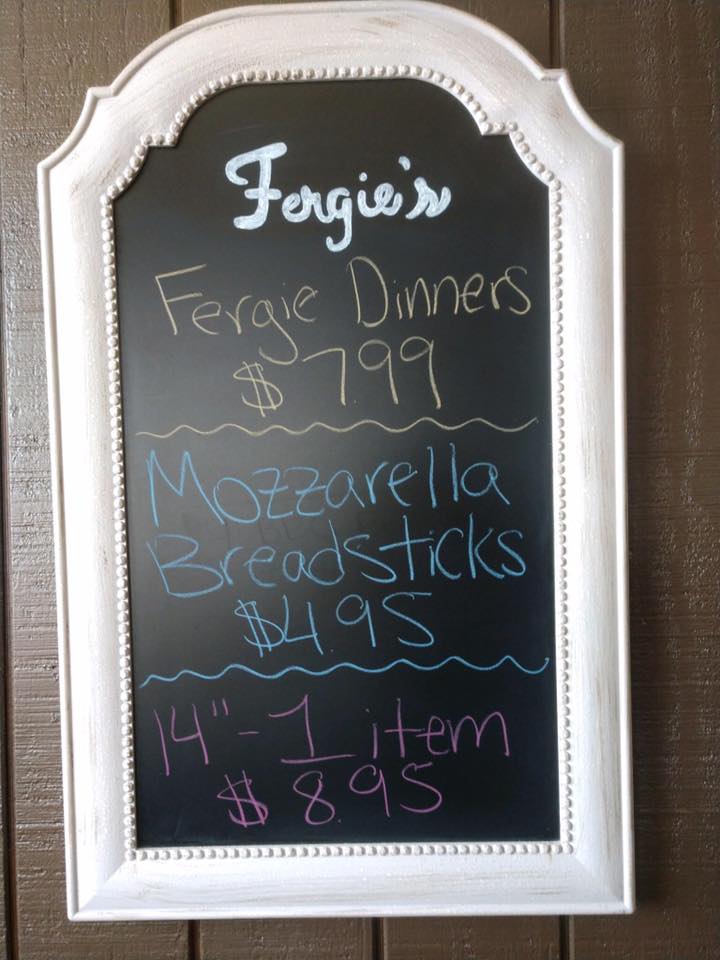 Fergie's
Fergie Dinners
$7.99
Mozzarella
Breadsticks
$4.95
14" - 1 item
$8.95